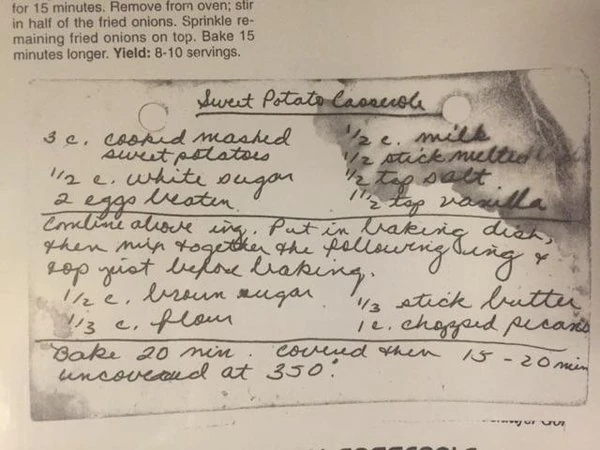 for 15 minutes. Remove from oven; stir
in half of the fried onions. Sprinkle re-
maining fried onions on top. Bake 15
minutes longer. Yield: 8-10 servings.
Sweet Potato Casserole
3 c. cooked mashed
sweet potatoes
1/2 c. white sugar
2 eggs beaten
1/2 c. milk
1/2 stick melted
1/2 tsp salt
1 1/2 tsp vanilla
Combine above ing. Put in baking dish,
then mix together the following ing &
top just before baking.
1/2 c. brown sugar
1/3 c. flour
1/3 stick butter
1 c. chopped pecans
Bake 20 min. covered then 15-20 min
uncovered at 350°.